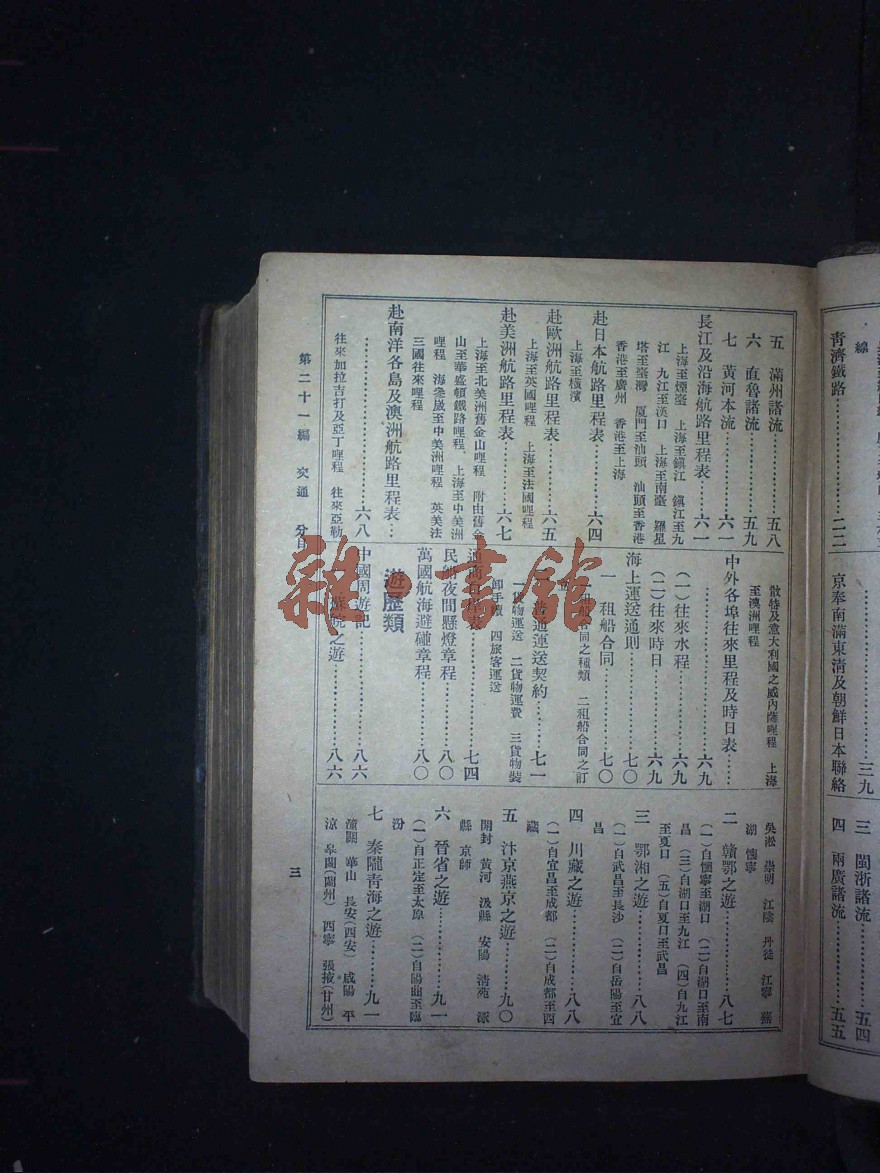 五　滿州諸流………五八
六　直魯諸流………五九
七　黃河本流………六一
長江及沿海航路里程表……六一
上海至煙臺　上海至鎮江　鎮江至九
江　九江至漢口　上海至南臺　羅星
塔至臺灣　厦門至汕頭　汕頭至香港
香港至廣州　香港至上海
赴日本航路里程表………六四
上海至橫濱
赴歐洲航路里程表………六五
上海至英國哩程　上海至法國哩程
赴美洲航路里程表………六七
上海至北美洲舊金山哩程　附由舊金
山至華盛頓鐵路哩程　上海至中美洲
哩程　海參崴至中美洲哩程　英美法
三國往來哩程
赴南洋各島及澳洲航路里程表…
………六八
往來加拉吉打及亞丁哩程　往來亞勒
散特及意大利國之威內薩哩程　上海
至澳洲哩程
中外各埠往來里程及時日表……
………六九
（一）往來水程………六九
（二）往來時日………六九
海上運送通則………七〇
一　租船合同………七〇
一租船合同之種類　二租船合同之訂
普通運送契約……七一
一貨物運送　二貨物運費　三貨物裝
卸手續　四旅客運送
通商行程表………七四
民船夜間懸燈章程……八〇
萬國航海避碰章程……八〇
遊歷類
中國周遊記………八六
蘇皖之遊………八六
吳淞　崇明　江陰　丹徒　江寧　蕪
湖　懷寧
二　贛鄂之遊………八七
（一）自懷寧至湖口　（二）自湖口至南
昌　（三）自湖口至九江　（四）自九江
至夏口　（五）自夏口至武昌
三　鄂湘之遊………八八
（一）自武昌至長沙　（二）自岳陽至宜
昌
四　川藏之遊………八八
（一）自宜昌至成都　（二）自成都至西
藏
五　汴京燕京之遊………九〇
開封　黃河　汲縣　安陽　清苑　涿
縣　京師
六　晉省之遊………九一
（一）自正定至太原　（二）自陽曲至臨
汾
七　秦隴青海之遊………九一
潼關　華山　長安（西安）　咸陽　平
涼　皋蘭（蘭州）　西寧　張掖（甘州）
第二十一編　交通　分目
三
線
青濟鐵路………二二
京奉南滿東清及朝鮮日本聯絡
………三九
三　閩浙諸流………五四
四　兩廣諸流………五五
雜·書館